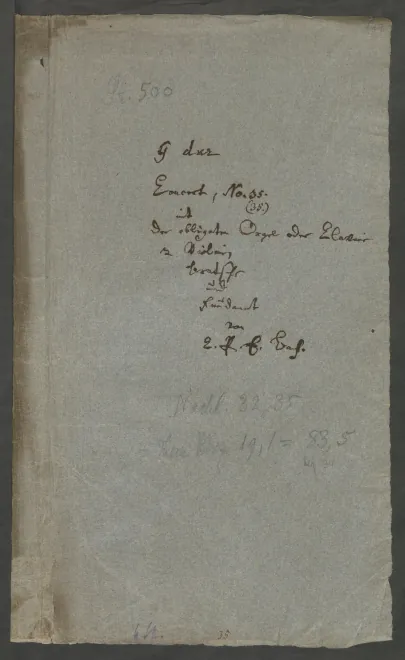 St. 500
G dur
Concert, No. 35.
(35.)
mit
der obligaten Orgel oder Clavier
2 Violin,
Bratsche
und
Fundament
von
C. P. E. Bach.
Nachl. 32, 35
19, 1 =
6 St.
35